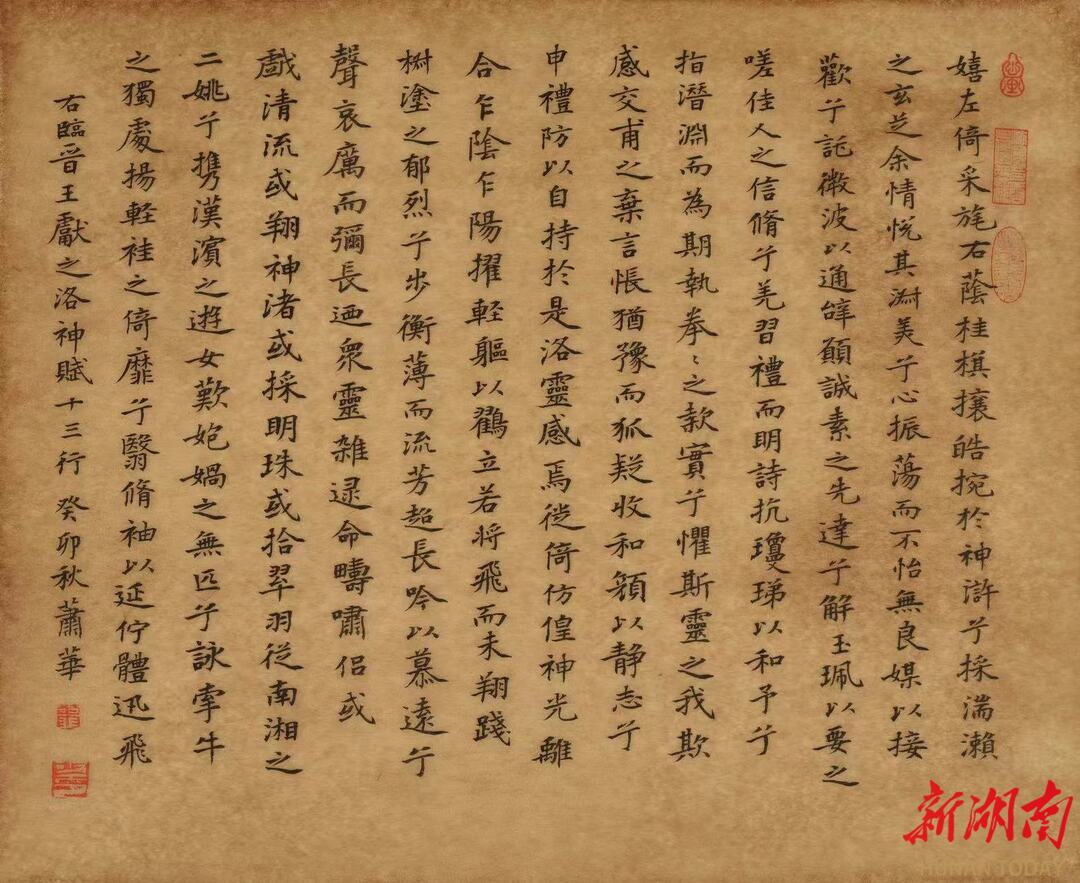 嬉左倚采旄右蔭桂棋攘皓捥於神滸兮採湍瀬
之玄芝余情悦其淑美兮心振蕩而不怡無良媒以接
歡兮託微波以通辞願誠素之先達兮解玉珮以要之
嗟佳人之信脩兮羌習禮而明詩抗瓊珶以和予兮
指潛淵而為期執拳〻之款實兮懼斯靈之我欺
感交甫之棄言悵猶豫而狐疑收和顔以静志兮
申禮防以自持於是洛靈感焉徙倚仿偟神光離
合乍陰乍陽擢軽軀以鸖立若将飛而未翔踐
椒塗之郁烈兮步衡薄而流芳超長吟以慕遠兮
聲哀厲而彌長迺衆靈雑遝命疇嘯侶或
戲清流或翔神渚或採明珠或拾翠羽従南湘之
二姚兮携漢濱之遊女歎匏媧之無匹兮詠牽牛
之獨處揚軽袿之倚靡兮翳脩袖以延佇體迅飛
右臨晋王獻之洛神賦十三行 癸卯秋蕭華
新湖南
HUNAN TODAY